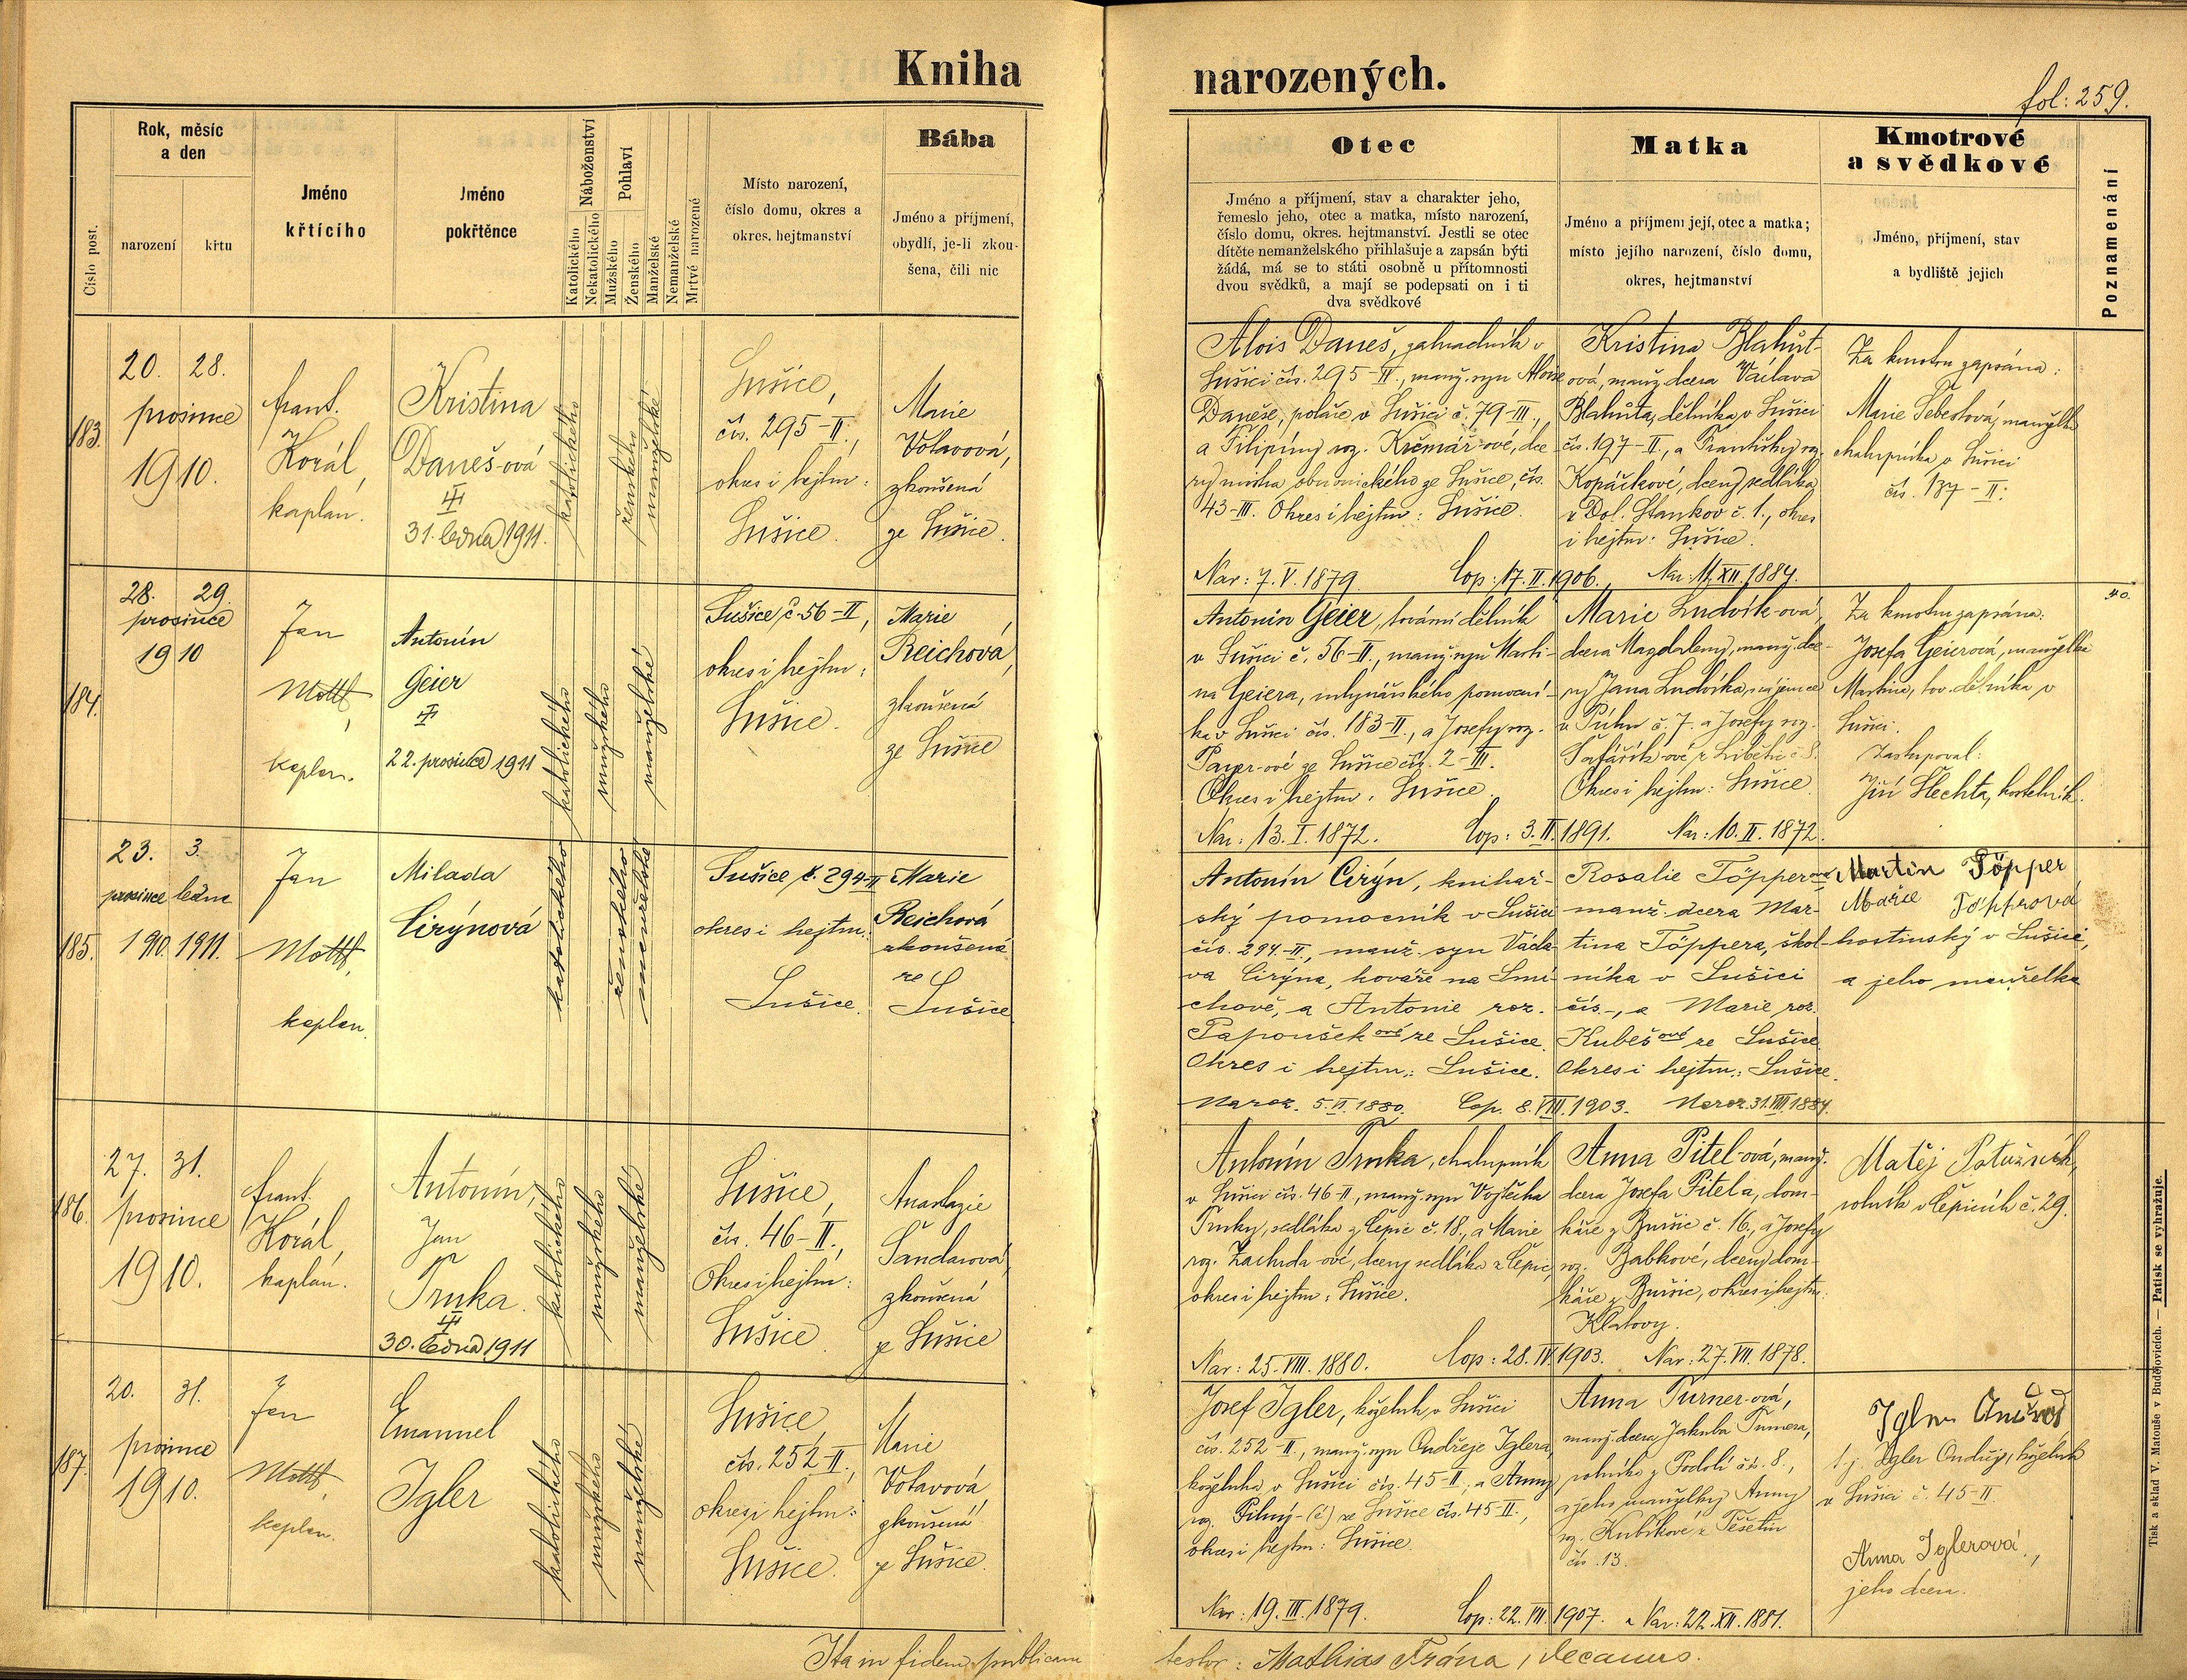 Kniha narozených.
fol: 259.
Číslo post.
Rok, měsíc
a den
narození
křtu
Jméno
křtícího
Jméno
pokřtěnce
Náboženství
Katolického
Nekatolického
Pohlaví
Mužského
Ženského
Manželské
Nemanželské
Mrtvé narozené
Místo narození,
číslo domu, okres a
okres. hejtmanství
Bába
Jméno a příjmení,
obydlí, je-li zkou-
šena, čili nic
Otec
Jméno a příjmení, stav a charakter jeho,
řemeslo jeho, otec a matka, místo narození,
číslo domu, okres. hejtmanství. Jestli se otec
dítěte nemanželského přihlašuje a zapsán býti
žádá, má se to státi osobně u přítomnosti
dvou svědků, a mají se podepsati on i ti
dva svědkové
Matka
Jméno a příjmení její, otec a matka;
místo jejího narození, číslo domu,
okres, hejtmanství
Kmotrové
a svědkové
Jméno, příjmení, stav
a bydliště jejich
Poznamenání
183.
20. 28.
prosince
1910.
Frant.
Korál,
kaplan.
Kristina
Daneš-ová
31. ledna 1911.
katolického
ženského
manželské
Sušice,
čís. 295-II.,
okres i hejtm:
Sušice.
Marie
Votavová,
zkoušená
ze Sušice.
Alois Daneš, zahradník v
Sušici čís. 295-II., manž. syn Aloise
Daneše, poláře v Sušici č. 79-III.,
a Filipíny roz. Krčmář-ové, dce
ry mistra obuvnického ze Sušice, čís.
43-III. Okres i hejtm: Sušice.
Nar: 7. V. 1879. Cop: 17. II. 1906.
Kristina Blahůt-
ová, manž. dcera Václava
Blahůta, dělníka v Sušici
čís. 197-II., a Františky roz.
Kopáčkové, dcery sedláka
z Dol. Stankov č. 1., okres
i hejtm: Sušice.
Nar: 11. XII. 1884.
Za kmotru zapsána:
Marie Šebestová, manželka
chalupníka v Sušici
čís. 137-II:
184.
28. 29.
prosince
1910
Jan
Mottl,
kaplan.
Antonín
Geier
22. prosince 1911
katolického
mužského
manželské
Sušice č. 56-II,
okres i hejtm:
Sušice.
Marie
Reichová,
zkoušená
ze Sušice
Antonín Geier, tovární dělník
v Sušici č. 56-II., manž. syn Marti-
na Geiera, mlynářského pomocní-
ka v Sušici čís. 183-II., a Josefy roz.
Payer-ové ze Sušice čís. 2-III.
Okres i hejtm: Sušice.
Nar: 13. I. 1872. Cop: 3. II. 1891.
Marie Ludvík-ová,
dcera Magdaleny, manž. dce-
ry Jana Ludvíka, nájemce
v Púhu č. 7. a Josefy roz.
Šafařík-ové z Libětic č 8.
Okres i hejtm: Sušice.
Nar: 10. II. 1872.
Za kmotru zapsána:
Josefa Geierová, manželka
Martina, tov. dělníka v
Sušici.
Zastupoval:
Jiří Šlechta, kostelník.
185.
23. 3.
prosince ledna
1910. 1911.
Jan
Mottl,
kaplan.
Milada
Cirýnová
katolického
ženského
manželské
Sušice č. 294-II
okres i hejtm.
Sušice.
Marie
Reichová
zkoušená
ze
Sušice
Antonín Cirýn, knihař-
ský pomocník v Sušici
čís. 294-II., manž. syn Václa
va Cirýna, kováře na Smí-
chově, a Antonie roz.
Papoušekové ze Sušice.
Okres i hejtm.: Sušice.
Naroz. 5. II. 1880. Cop. 8. VIII. 1903.
Rosalie Töpperová
manž. dcera Mar-
tina Töppera, škol-
níka v Sušici
čís.-, a Marie roz.
Kubešové ze Sušice
Okres i hejtm.: Sušice.
Naroz. 31. VIII. 1884.
Martin Töpper
Marie Töpprová
hostinský v Sušici,
a jeho manželka
186.
27. 31.
prosince
1910.
Frant.
Korál,
kaplan.
Antonín,
Jan
Trnka.
30. ledna 1911
katolického
mužského
manželské
Sušice,
čís. 46-II.,
Okres i hejtm:
Sušice.
Anastazie
Šandarová,
zkoušená
ze Sušice
Antonín Trnka, chalupník
v Sušici čís. 46-II, manž. syn Vojtěcha
Trnky, sedláka z Čepic č. 18., a Marie
roz. Zachrda-ové, dcery sedláka z Čepic,
okres i hejtm: Sušice.
Nar: 25. VIII. 1880. Cop: 28. IV. 1903.
Anna Pitel-ová, manž.
dcera Josefa Pitela, dom-
káře z Buršic č. 16, a Josefy
roz. Babkové, dcery dom-
káře z Buršic, okres i hejtm:
Klatovy.
Nar: 27. VII. 1878.
Matěj Potužník,
rolník v Čepicích č. 29.
187.
20. 31.
prosince
1910.
Jan
Mottl,
kaplan.
Emanuel
Igler
katolického
mužského
manželské
Sušice
čís. 252-II.,
okres i hejtm:
Sušice.
Marie
Votavová
zkoušená
ze Sušice.
Josef Igler, koželuh v Sušici
čís. 252-II., manž. syn Ondřeje Iglera,
koželuha v Sušici čís. 45-II., a Anny
roz. Pilný-(é) ze Sušice čís. 45-II.,
okres i hejtm: Sušice.
Nar: 19. III. 1879. Cop: 22. VII. 1907.
Anna Turner-ová,
manž. dcera Jakuba Turnera,
rolníka z Podolí čís. 8.,
a jeho manželky Anny
roz. Kubíkové z Těšetin
čís. 13.
Nar: 22. XII. 1881.
Igler Ondřej
t. j. Igler Ondřej, koželuh
v Sušici č. 45-II
Anna Iglerová,
jeho dcera.
Ita in fidem publicam
testor: Mathias Frána, decanus.
Tisk a sklad V. Matouše v Budějovicích. — Patisk se vyhražuje.